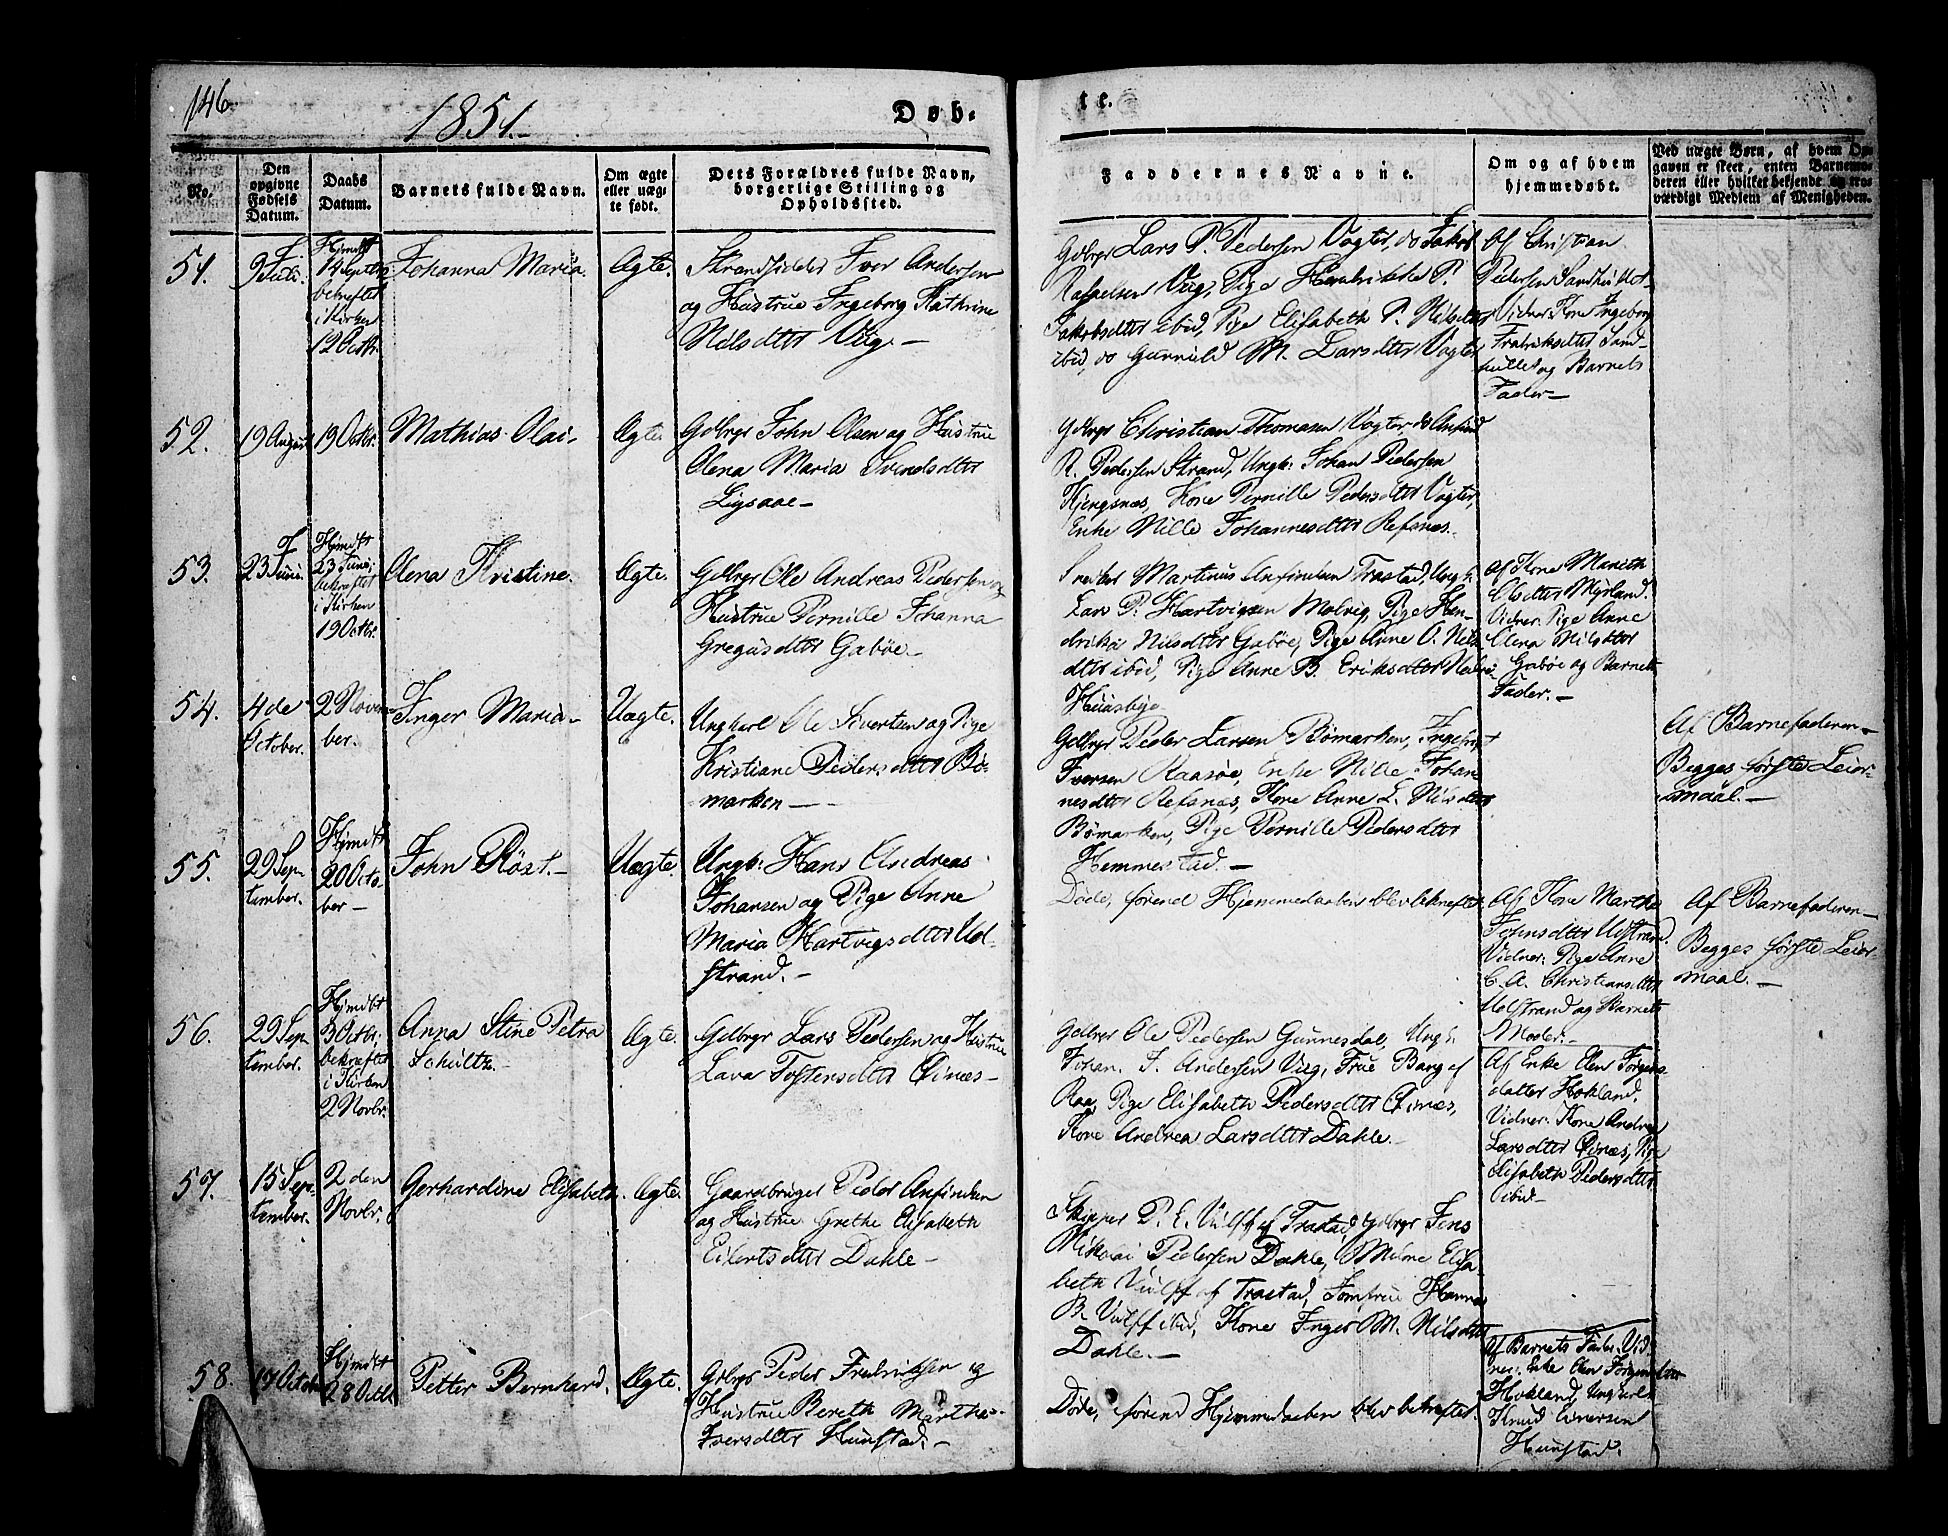 146.
1851.
Døb-
te.
No.
Den opgivne Fødsels Datum.
Daabs Datum.
Barnets fulde Navn.
Om ægte eller uægte født.
Dets Forældres fulde Navn, borgerlige Stilling og Opholdssted.
Faddernes Navne.
Om og af hvem hjemmedøbt.
Ved uægte Børn, af hvem Opgaven er skeet, enten Barnemoderen eller hvilket bekjendt og troværdigt Medlem af Menigheden.
51.
Hjmdbt
14 Septbr
bekræftet
i Kirken
12 Octbr.
Johanna Maria.
Ægte.
Strandsidder Iver Andersen
og Hustrue Ingeborg Kathrine
Nilsdtter Viig.—
Gdbrgr Lars P. Pedersen Vogter, do Jakob
Rafaelsen Viig, Pige Hendrikke P.
Jakobsdtter ibid, Pige Elisabeth P. Nilsdtter
ibid, do Gunnild M. Larsdtter Vogter
Af Christian
Pedersen Sandhullet
Vidner: Kone Ingeborg
Fredriksdtter Sand-
hullet og Barnets
Fader.—
52.
19 August
19 Octbr.
Mathias Olai.—
Ægte.
Gdbrgr John Olsen og Hustrue
Olena Maria Svendsdtter
Ligsaae—
Gdbrgr Christian Thomasen Vogter, do Anfind
R. Pedersen Strand, Ungk: Johan Pedersen
Kjengsnæs, Kone Pernille Pedersdtter Vogter,
Enke Nille Johannesdtter Refsnæs.
53.
23 Juni.
Hjmdbt
23 Juni,
bekræftet
i Kirken
19 Octbr.
Olena Kristine.
Ægte.
Gdbrgr Ole Andreas Pedersen og
Hustrue Pernille Johanna
Gregusdtter Gabøe.—
Martinus Anfindsen Trastad, Ungk:
Lars P. Hartvigsen Molvig, Pige Hen-
drika Nilsdtter Gabøe, Pige Anne O. Nils-
dtter ibid, Pige Anne B. Eriksdtter
Huusbye.
Af Kone Mareth
Olsdtter Myrland.
Vidner: Pige Anne
Olena Nilsdtter
Gabøe og Barnets
Fader.—
54.
4de
October.
2 Novem-
ber.
Inger Maria—
Uægte.
Ungkarl Ole Sivertsen og Pige
Kristiane Pedersdtter Bø-
marken—
Gdbrgr Peder Larsen Bømarken, Ingebrigt
Iversen Raasøe, Enke Nille Johan-
nesdtter Refsnæs, Kone Anne L. Nilsdtter
Bømarken, Pige Pernille Pedersdtter
Hemmestad.—
Af Barnefaderen—
Begges første Leier-
maal.—
55.
29 Sep-
tember.
Hjmdbt
20 Octo-
ber—
John Røst.—
Uægte.
Ungk: Hans Andreas
Johansen og Pige Anne
Maria Hartvigsdtter Ud-
strand.—
Døde, førend Hjemmedaaben blev bekræftet.
Af Kone Martha
Johnsdtter Udstrand.
Vidner: Pige Anne
C. A. Christiansdtter
Udstrand og Barnets
Moder.—
Af Barnefaderen—
Begges første Leier-
maal.—
56.
29 Sep-
tember.
Hjmdbt
3 Octbr.
bekræftet
i Kirken
2 Novbr.
Anna Stine Petra
Schulth.—
Ægte.
Gdbrgr Lars Pedersen og Hustrue
Lava Tostensdtter Qvinæs—
Gdbrgr Ole Pedersen Gunnesdal, Ungk:
Johan J. Andersen Viig, Frue Bang af
Raa, Pige Elisabeth Pedersdtter Qvinæs,
Kone Andrea Larsdtter Dahle.—
Af Enke Elen Jørgens-
datter Hokland.
Vidner: Kone Andrea
Larsdtter Qvinæs, Pige
Elisabeth Pedersdtter
ibid—
57.
15 Sep-
tember.
2 den
Novbr.
Gerhardine Elisabeth.
Ægte.
Gaardbruger Peder Anfindsen
og Hustrue Grethe Elisabeth
Eilertsdtter Dahle—
Skipper P. E. Vulff af Trastad, Gdbrgr Jens
Nikolai Pedersen Dahle, Mdme Elisa-
beth Vulff af Trastad, Jomfrue Hanna
B. Vulff ibid, Kone Inger M. Nilsdtter
Dahle.—
58.
17 Octobr
Hjmdbt
28 Octbr
Petter Bernhard.
Ægte.
Gdbrgr Peder Fredriksen og
Hustrue Bereth Martha
Iversdtter Hunstad.—
Døde, førend Hjemmedaaben blev bekræftet.
Af Barnets Fader. Vid-
ner: Enke Elen Jørgensdtter
Hokland, Ungkarl
Knud Iversen
Hunstad.